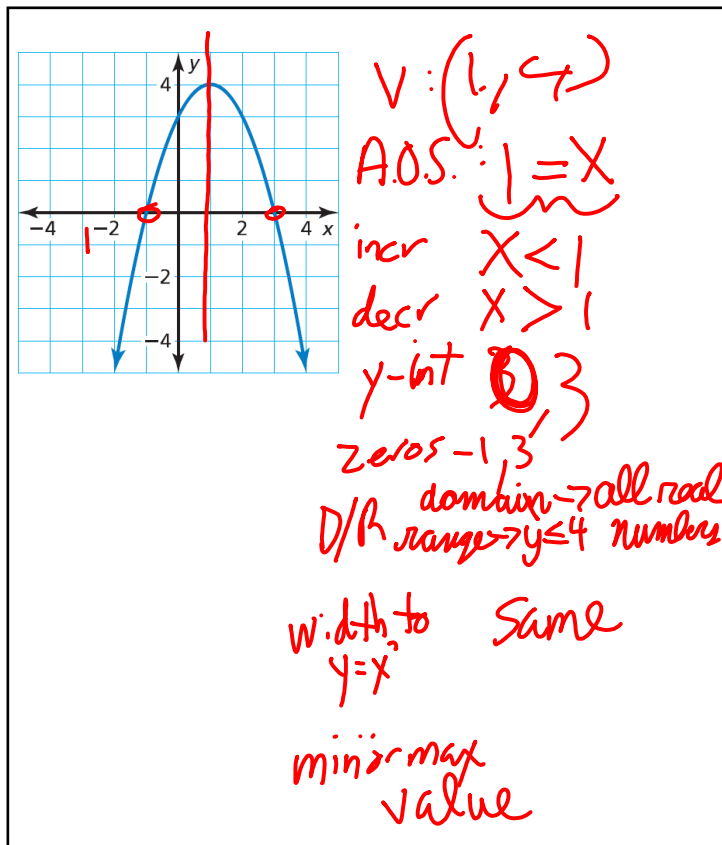 y
4
-4 -2 2 4 x
1
-2
-4
V: (1, 4)
A.O.S.: 1 = X
incr X < 1
decr X > 1
y-int 3, 3
zeros -1, 3
D/R domain → all real numbers
range → y ≤ 4
width to y = x² same
min or max
value